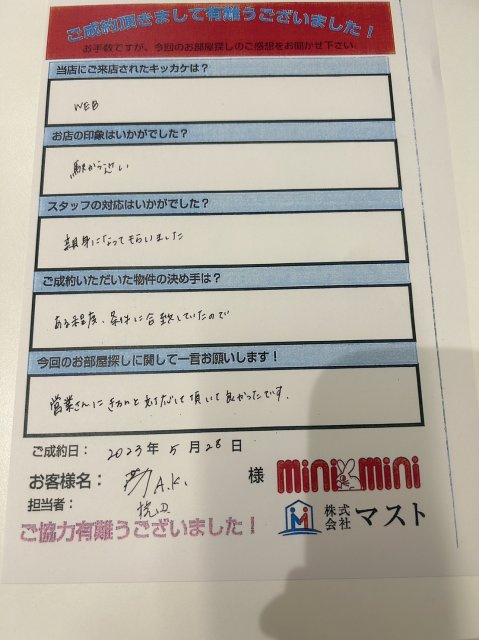 ご成約頂きまして有難うございました！
お手数ですが、今回のお部屋探しのご感想をお聞かせ下さい。
当店にご来店されたキッカケは？
WEB
お店の印象はいかがでした？
駅から近い
スタッフの対応はいかがでした？
親身になってもらいました
ご成約いただいた物件の決め手は？
ある程度、条件に合致していたので
今回のお部屋探しに関して一言お願いします！
営業さんに きちんと対応して頂いて良かったです。
ご成約日： 2023年 5月 28日
お客様名： A.K. 様
担当者：
ご協力有難うございました！
mini mini
株式会社 マスト